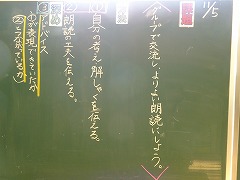 11/5
グループで交流し、よりよい朗読にしよう。
①自分の考え、解しゃくを伝える。
②朗読の工夫を伝える。
③アドバイス
①が表現できていたか
②こうなっているか